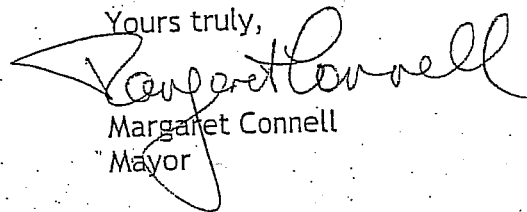 Yours truly,
Margaret Connell
Margaret Connell
Mayor